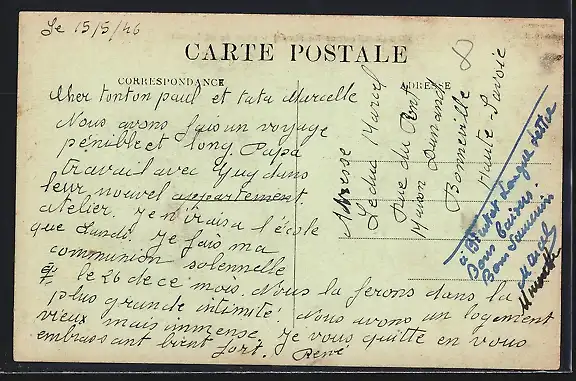 Le 15/5/46
CARTE POSTALE
CORRESPONDANCE
ADRESSE
Cher tonton paul et tata Marcelle
Nous avons fais un voyage
pénible et long. Papa
travail avec Guy dans
leur nouvel appartement
atelier. Je n'irais a l'école
que Lundi. Je fais ma
communion solennelle
le 26 de ce mois. Nous la ferons dans la
plus grande intimité. Nous avons un logement
vieux mais immense. Je vous quitte en vous
embrassant bient fort. René
Adresse
Leduc Marcel
Rue du Pont
Maison Durand
Bonneville
Haute Savoie
à Bientôt Longue Lettre
Bons Baisers.
Bon Souvenir